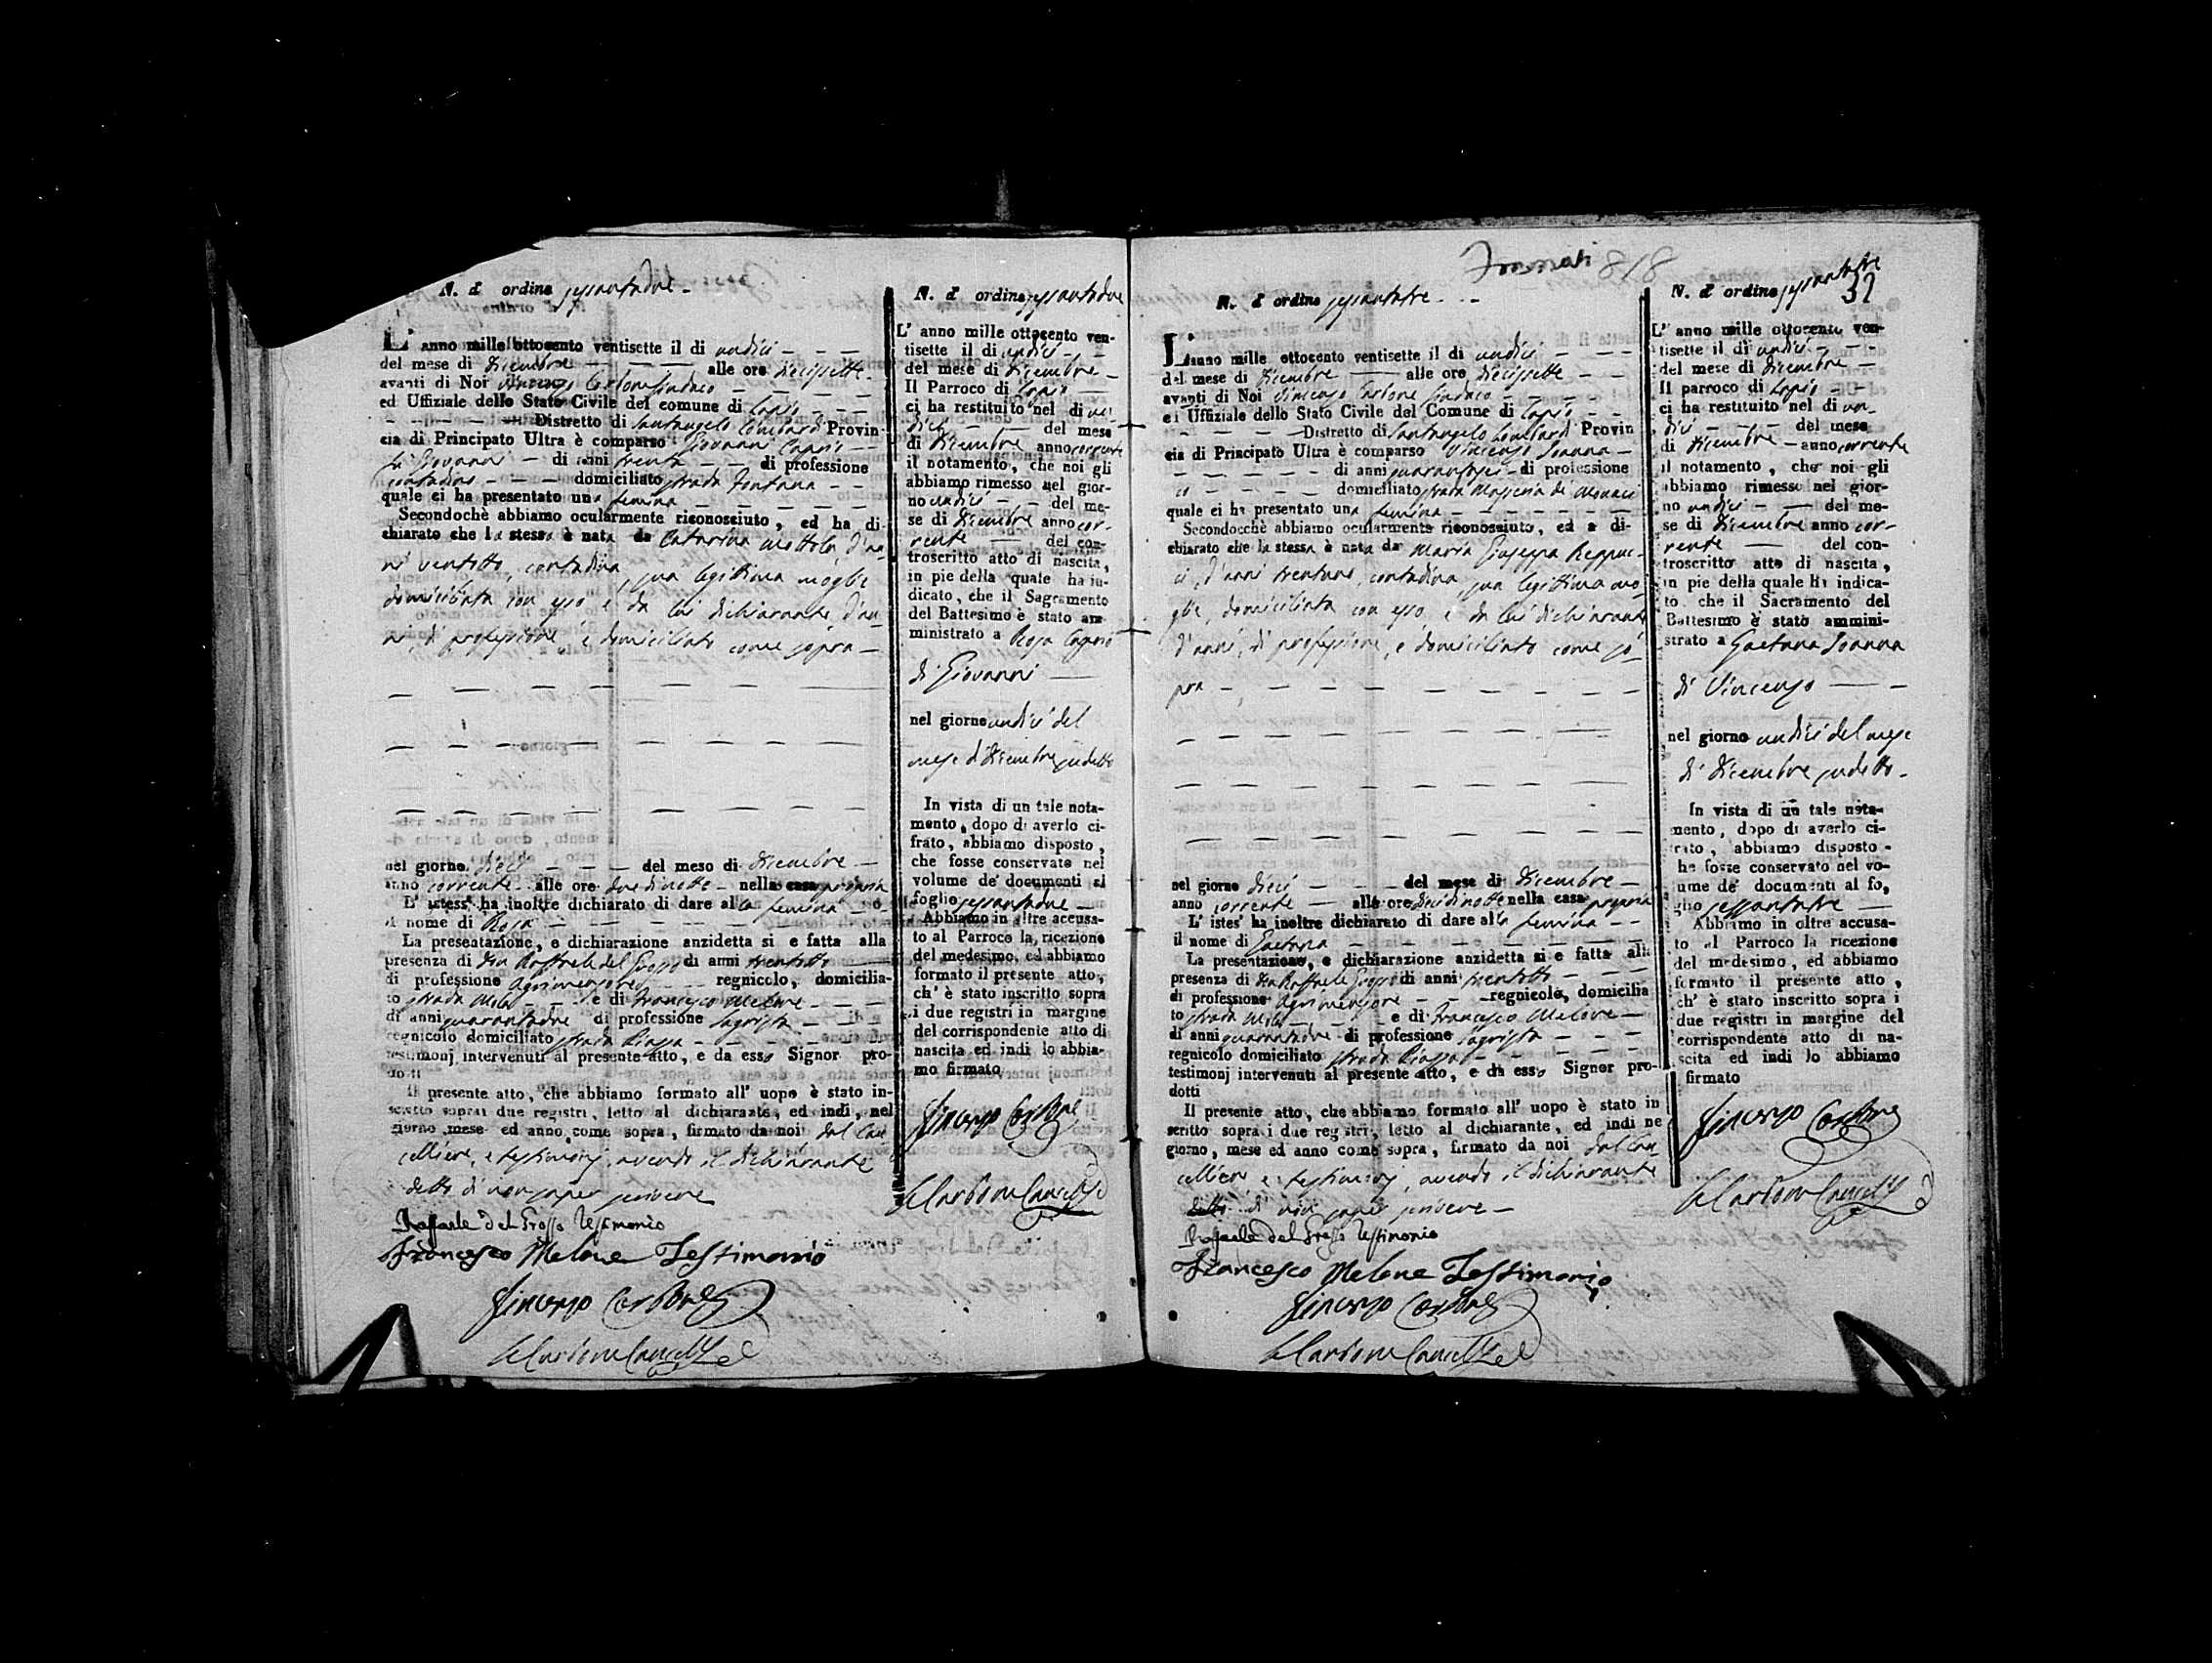 N. d' ordine sessantadue -
L' anno mille ottocento ventisette il di undici - - -
del mese di Dicembre - - - alle ore diecisette -
avanti di Noi Vincenzo Carbone Sindaco - - - -
ed Uffiziale dello Stato Civile del comune di Lapio - - -
- - - - - Distretto di Santangelo Lombardi Provin
cia di Principato Ultra è comparso Giovanni Caprio - -
fu Giovanni - di anni trenta - - di professione
contadino - - - domiciliato strada Fontana - -
quale ci ha presentato una femina - - - - -
Secondochè abbiamo ocularmente riconosciuto, ed ha di-
chiarato che la stessa è nata da Catarina Mottola d'an
ni ventotto, contadina, sua legittima moglie
domiciliata con esso e da lui dichiarante, d'an-
ni, di professione e domiciliato come sopra -
nel giorno dieci - - - del meso di Dicembre -
anno corrente - alle ore due di notte - nella casa propria
L' istess' ha inoltre dichiarato di dare alla femina - o
il nome di Rosa - - - - -
La presentazione, e dichiarazione anzidetta si e fatta alla
presenza di Don Raffaele del Grosso di anni trentotto
di professione agrimensore - - regnicolo, domicilia-
to strada - - e di Francesco Melone - - -
di anni quarantadue di professione Sagrista - - -
regnicolo domiciliato strada Piazza - - - - -
testimonj intervenuti al presente atto, e da esso Signor pro-
dotti
Il presente atto, che abbiamo formato all' uopo è stato in-
scritto sopra i due registri, letto al dichiarante, ed indi, nel
giorno mese ed anno come sopra, firmato da noi dal Can
celliere, e testimonj, avendo il dichiarante
detto di non saper scrivere
Raffaele del Grosso Testimonio
Francesco Melone Testimonio
Vincenzo Carbone
Carbone Canc.
N. d' ordine sessantadue
L' anno mille ottocento ven-
tisette il di undici - -
del mese di Dicembre -
Il Parroco di Lapio
ci ha restituito nel di un
dici - - del mese
di Dicembre anno corrente
il notamento, che noi gli
abbiamo rimesso nel gior-
no undici - - del me-
se di Dicembre anno cor-
rente - del con-
troscritto atto di nascita,
in pie della quale ha in-
dicato, che il Sagramento
del Battesimo è stato am-
ministrato a Rosa Caprio
di Giovanni -
nel giorno undici del
mese di Dicembre sudetto
In vista di un tale nota-
mento, dopo di averlo ci-
frato, abbiamo disposto,
che fosse conservato nel
volume de' documenti al
foglio sessantadue -
Abbiamo in oltre accusa-
to al Parroco la ricezione
del medesimo, ed abbiamo
formato il presente atto,
ch' è stato inscritto sopra
i due registri in margine
del corrispondente atto di
nascita ed indi lo abbia-
mo firmato
Vincenzo Carbone
Carbone Canc.
818
N. d' ordine sessantatre - - -
L' anno mille ottocento ventisette il di undici - - -
del mese di Dicembre - alle ore diecisette - -
avanti di Noi Vincenzo Carbone Sindaco - - - -
ed Uffiziale dello Stato Civile del Comune di Lapio - -
- - - - Distretto di Santangelo Lombardi Provin
cia di Principato Ultra è comparso Vincenzo Ioanna -
- - - - - di anni quarantasei - di professione
- - - - domiciliato strada Masseria di Monaci
quale ci ha presentato una femina - - - - -
Secondocchè abbiamo ocularmente riconosciuto, ed a di-
chiarato che la stessa è nata da Maria Giuseppa Reppuc-
ci, d'anni trentuno, contadina, sua legittima mo
glie, domiciliata con esso, e da lui dichiarante
d'anni, di professione, e domiciliato come so-
pra - - - - - - -
nel giorno dieci - - - del mese di Dicembre -
anno corrente - alle ore dieci di notte nella casa propria
L' istes' ha inoltre dichiarato di dare alla femina - -
il nome di Gaetana - - - - -
La presentazione, e dichiarazione anzidetta si e fatta alla
presenza di Don Raffaele Grosso di anni trentotto - - -
di professione agrimensore - - regnicolo, domicilia
to strada - - - e di Francesco Melone -
di anni quarantadue di professione Sagrista - - -
regnicolo domiciliato strada Piazza - - - - -
testimonj intervenuti al presente atto, e da esso Signor pro-
dotti
Il presente atto, che abbiamo formato all' uopo è stato in
scritto sopra i due registri, letto al dichiarante, ed indi ne
giorno, mese ed anno come sopra, firmato da noi dal Can
celliere e testimonj, avendo il dichiarante
detto di non saper scrivere -
Raffaele del Grosso Testimonio
Francesco Melone Testimonio
Vincenzo Carbone
Carbone Canc.
N. d' ordine sessantatre
32
L' anno mille ottocento ven-
tisette il di undici - - -
del mese di Dicembre -
Il parroco di Lapio - -
ci ha restituito nel di un-
dici - - - del mese
di Dicembre - anno corrente
il notamento, che noi gli
abbiamo rimesso nel gior-
no undici - - del me-
se di Dicembre anno cor-
rente - del con-
troscritto atto di nascita,
in pie della quale ha indica-
to che il Sacramento del
Battesimo è stato ammini-
strato a Gaetana Ioanna
di Vincenzo - -
nel giorno undici del mese
di Dicembre sudetto -
In vista di un tale nota-
mento, dopo di averlo ci-
frato, abbiamo disposto -
he fosse conservato nel vo-
ume de' documenti al fo,
glio sessantatre -
Abbiamo in oltre accusa-
to al Parroco la ricezione
del medesimo, ed abbiamo
formato il presente atto,
ch' è stato inscritto sopra i
due registri in margine del
corrispondente atto di na-
scita ed indi lo abbiamo
firmato
Vincenzo Carbone
Carbone Canc.